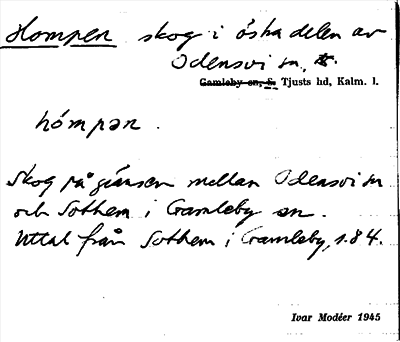 Hompen skog i östra delen av
Odensvi sn,
Gamleby sn, S. Tjusts hd, Kalm. l.
hómpən.
Skog på gränsen mellan Odensvi sn
och Sothem i Gamleby sn.
Uttal från Sothem i Gamleby, s. 84.
Ivar Modéer 1945